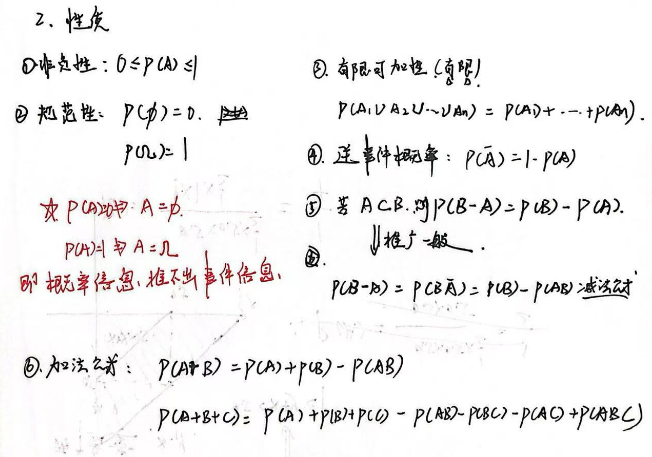 2、性质
①非负性：0≤P(A)≤1
② 规范性：P(∅)=0.
P(Ω)=1
☆ P(A)=0⇏ A=∅.
P(A)=1⇏A=Ω
即概率信息，推不出事件信息.
③. 有限可加性 (有限)
P(A₁∪A₂∪…∪Aₙ) = P(A₁)+…+P(Aₙ).
④. 逆事件概率：P(Ā)=1-P(A)
⑤ 若 A⊂B. 则P(B-A)=P(B)-P(A).
⇓推广一般.
P(B-A) = P(BĀ)=P(B)-P(AB) 减法公式
⑥. 加法公式： P(A+B) =P(A)+P(B)-P(AB)
P(A+B+C)= P(A)+P(B)+P(C) - P(AB)-P(BC)-P(AC)+P(ABC)